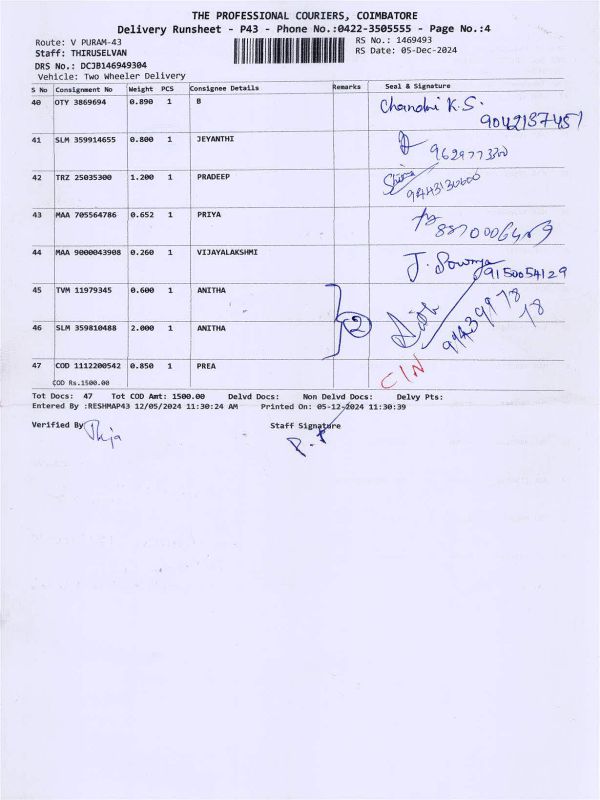 THE PROFESSIONAL COURIERS, COIMBATORE
Delivery Runsheet - P43 - Phone No.:0422-3505555 - Page No.:4
Route: V PURAM-43
RS No.: 1469493
Staff: THIRUSELVAN
RS Date: 05-Dec-2024
DRS No.: DCJB146949304
Vehicle: Two Wheeler Delivery
S No Consignment No Weight PCS Consignee Details Remarks Seal & Signature
40 OTY 3869694 0.890 1 B Chandni K.S.
9042137451
41 SLM 359914655 0.800 1 JEYANTHI
42 TRZ 25035300 1.200 1 PRADEEP
9443130600
43 MAA 705564786 0.652 1 PRIYA
44 MAA 9000043908 0.260 1 VIJAYALAKSHMI J. Sowmya
9150054129
45 TVM 11979345 0.600 1 ANITHA
2
46 SLM 359810488 2.000 1 ANITHA
47 COD 1112200542 0.850 1 PREA C/N
COD Rs.1500.00
Tot Docs: 47 Tot COD Amt: 1500.00 Delvd Docs: Non Delvd Docs: Delvy Pts:
Entered By :RESHMAP43 12/05/2024 11:30:24 AM Printed On: 05-12-2024 11:30:39
Verified By
Staff Signature